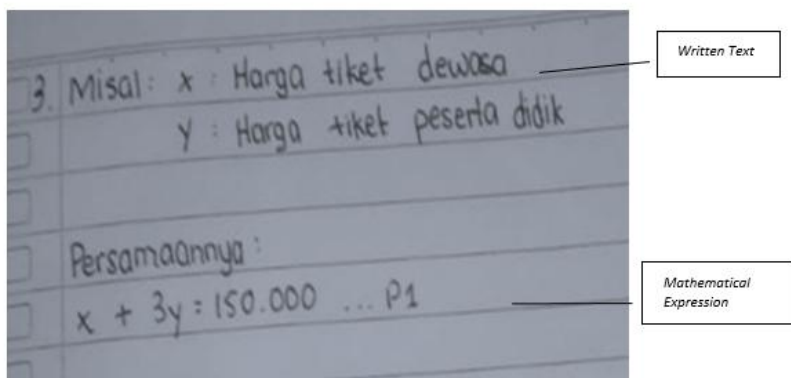 3. Misal: x : Harga tiket dewasa
y : Harga tiket peserta didik
Persamaannya:
x + 3y = 150.000 ... P1
Written Text
Mathematical
Expression